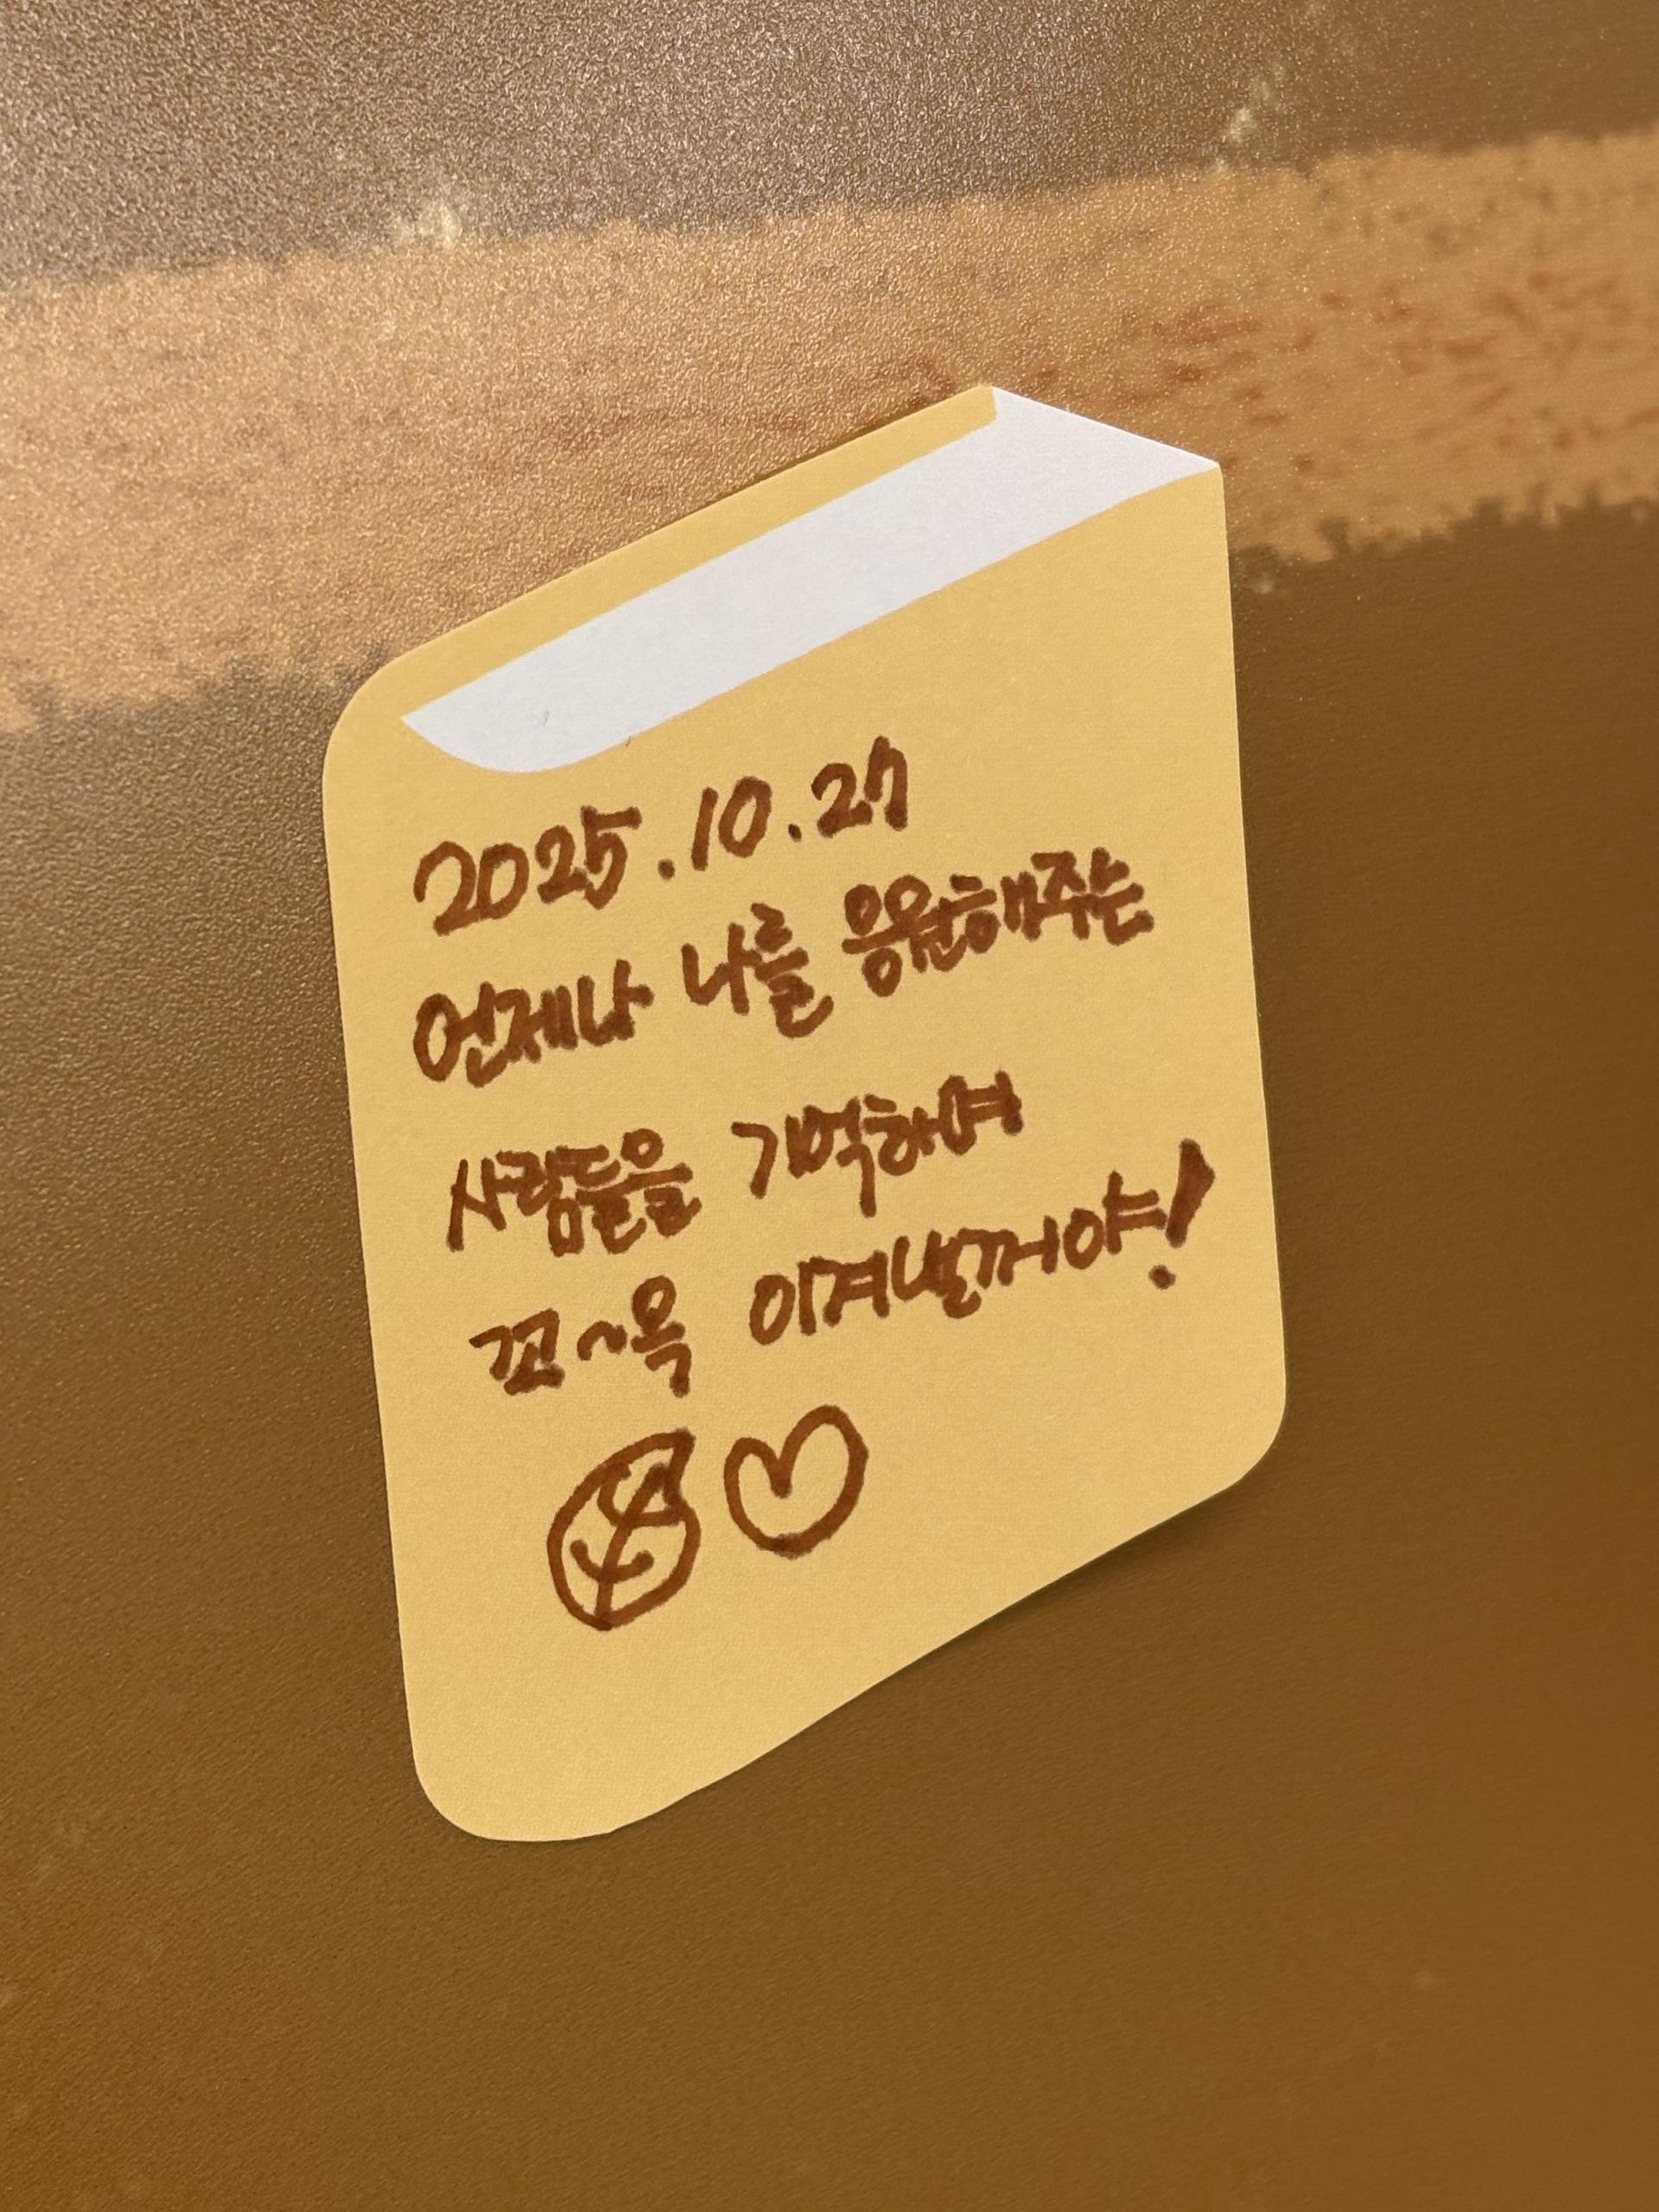 2025.10.27
언제나 나를 응원해주는
사람들을 기억하며
꼬~옥 이겨낼꺼야!